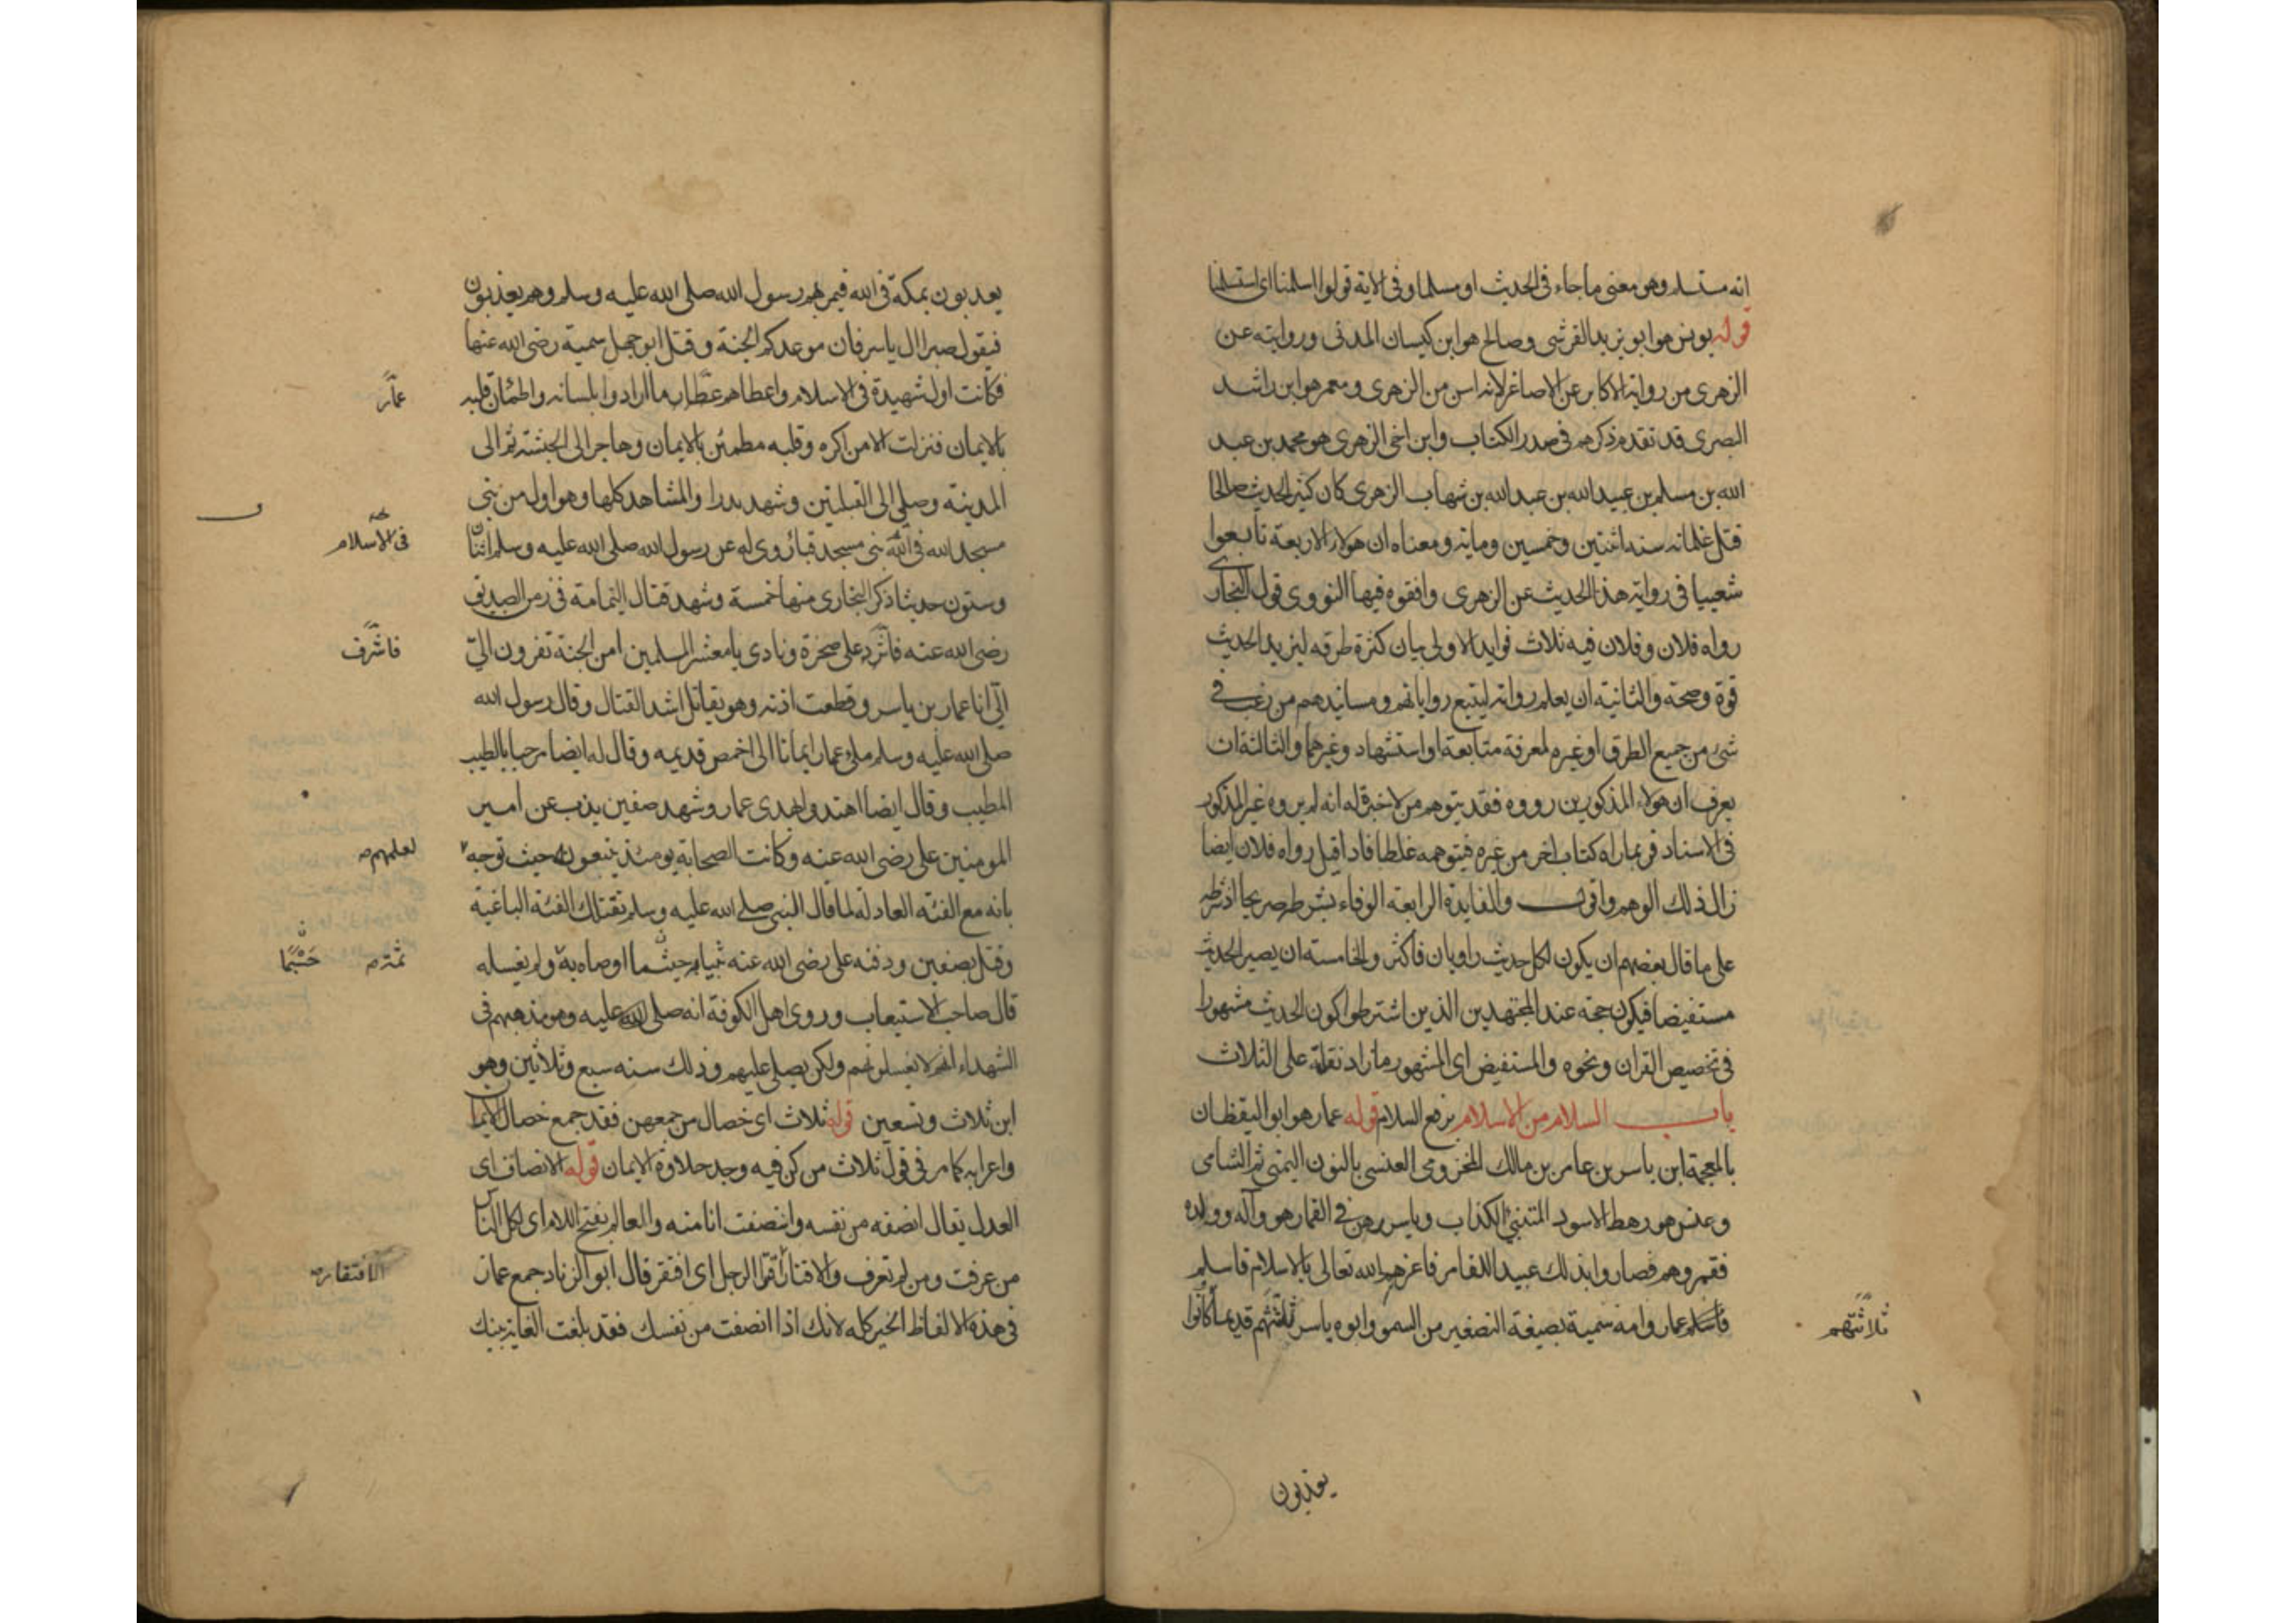 انه مستسلم وهو معنى ما جاء فى الحديث او مسلما وفى الاية قولوا اسلمنا اى استسلمنا
قوله يونس هو ابو يزيد القرشى وصالح هو ابن كيسان المدنى وروايته عن
الزهرى من رواية الاكابر عن الاصاغر لانه اسن من الزهرى ومعمر هو ابن راشد
البصرى قد تقدم ذكرهم فى صدر الكتاب وابن اخى الزهرى هو محمد بن عبد
الله بن مسلم بن عبيد الله بن عبد الله بن شهاب الزهرى كان كثير الحديث صالحا
قتل غلمانه سنة اثنتين وخمسين وماية ومعناه ان هولاء الاربعة تابعوا
شعيبا فى رواية هذا الحديث عن الزهرى وافقوه فيها النووى قول البخارى
رواه فلان وفلان فيه ثلاث فوايد الاولى بيان كثرة طرقه ليزيد الحديث
قوة وصحة والثانية ان يعلم رواته ليتبع رواياتهم ومسانيدهم من رغب فى
شى من جميع الطرق او غيره لمعرفة متابعة او استشهاد وغيرهما والثالثة ان
يعرف ان هولاء المذكورين رووه فقد يتوهم من لا خبرة له انه لم يروه غير المذكور
فى الاسناد فربما راه كتاب اخر من غيره فيتوهمه غلطا فاذا قيل رواه فلان ايضا
زال ذلك الوهم واقول والفايدة الرابعة الوفاء بشرطه صريحا اذ شرطه
على ما قال بعضهم ان يكون لكل حديث راويان فاكثر والخامسة ان يصير الحديث
مستفيضا فيكون حجة عند المجتهدين الذين اشترطوا كون الحديث مشهورا
فى تخصيص القران ونحوه والمستفيض اى المشهور ما زاد نقلته على الثلاث
باب السلام من الاسلام برفع السلام قوله عمار هو ابو اليقظان
بالمعجمة ابن ياسر بن عامر بن مالك المخزومى العنسى بالنون اليمنى ثم الشامى
وعنس هو رهط الاسود المتنبئ الكذاب وياسر رهن فى القمار هو وآله وولده
فقمروهم فصاروا بذلك عبيدا للقامر فاعزهم الله تعالى بالاسلام فاسلم
فاسلم عمار وامه سمية بصيغة التصغير من السمو وابوه ياسر ثلثتهم قديما كانوا
ثلاثتهم
يعذبون
يعذبون بمكة فى الله فيمر بهم رسول الله صلى الله عليه وسلم وهم يعذبون
فيقول صبرا ال ياسر فان موعدكم الجنة وقتل ابو جهل سمية رضى الله عنها
فكانت اول شهيدة فى الاسلام واعطاهم عطار ما ارادوا بلسانه واطمئان قلبه
عمار
بالايمان فنزلت الا من اكره وقلبه مطمئن بالايمان وهاجر الى الحبشة ثم الى
المدينة وصلى الى القبلتين وشهد بدرا والمشاهد كلها وهو اول من بنى
مسجد الله فى الله بنى مسجد قبا روى له عن رسول الله صلى الله عليه وسلم اثنان
فى الاسلام
وستون حديثا ذكر البخارى منها خمسة وشهد قتال اليمامة فى زمن الصديق
رضى الله عنه على صخرة ونادى يا معشر المسلمين امن الجنة تفرون الىّ
فاشرف
الىّ انا عمار بن ياسر وقطعت اذنه وهو يقاتل اشد القتال وقال رسول الله
صلى الله عليه وسلم ملئ عمار ايمانا الى اخمص قدميه وقال له ايضا مرحبا بالطيب
المطيب وقال ايضا اهتدوا بهدى عمار وشهد صفين يذب عن امير
المومنين على رضى الله عنه وكانت الصحابة يومئذ يتبعونه حيث توجه
لعلمهم
بانه مع الفئة العادلة لما قال النبى صلى الله عليه وسلم تقتلك الفئة الباغية
وقتل بصفين ودفنه على رضى الله عنه اوصاه به ولم يغسله
ثمة
قال صاحب الاستيعاب وروى اهل الكوفة انه صلى عليه وهو مذهبهم فى
الشهداء انهم لا يغسلونهم ولكن يصلى عليهم وذلك سنه سبع وثلاثين وهو
ابن ثلاث وتسعين قوله ثلاث اى خصال من جمعهن فقد جمع خصال الايمان
واعرابه كما مر فى قول ثلاث من كن فيه وجد حلاوة الايمان قوله الانصاف اى
العدل يقال انصفه من نفسه وانتصفت انا منه والعالم بفتح اللام اى لكل الناس
من عرفت ومن لم تعرف والاقتار اقتر الرجل اى افتقر قال ابو الزناد جمع عمار
الافتقار
فى هذه الالفاظ الخير كله لانك اذا انصفت من نفسك فقد بلغت الغاية بينك